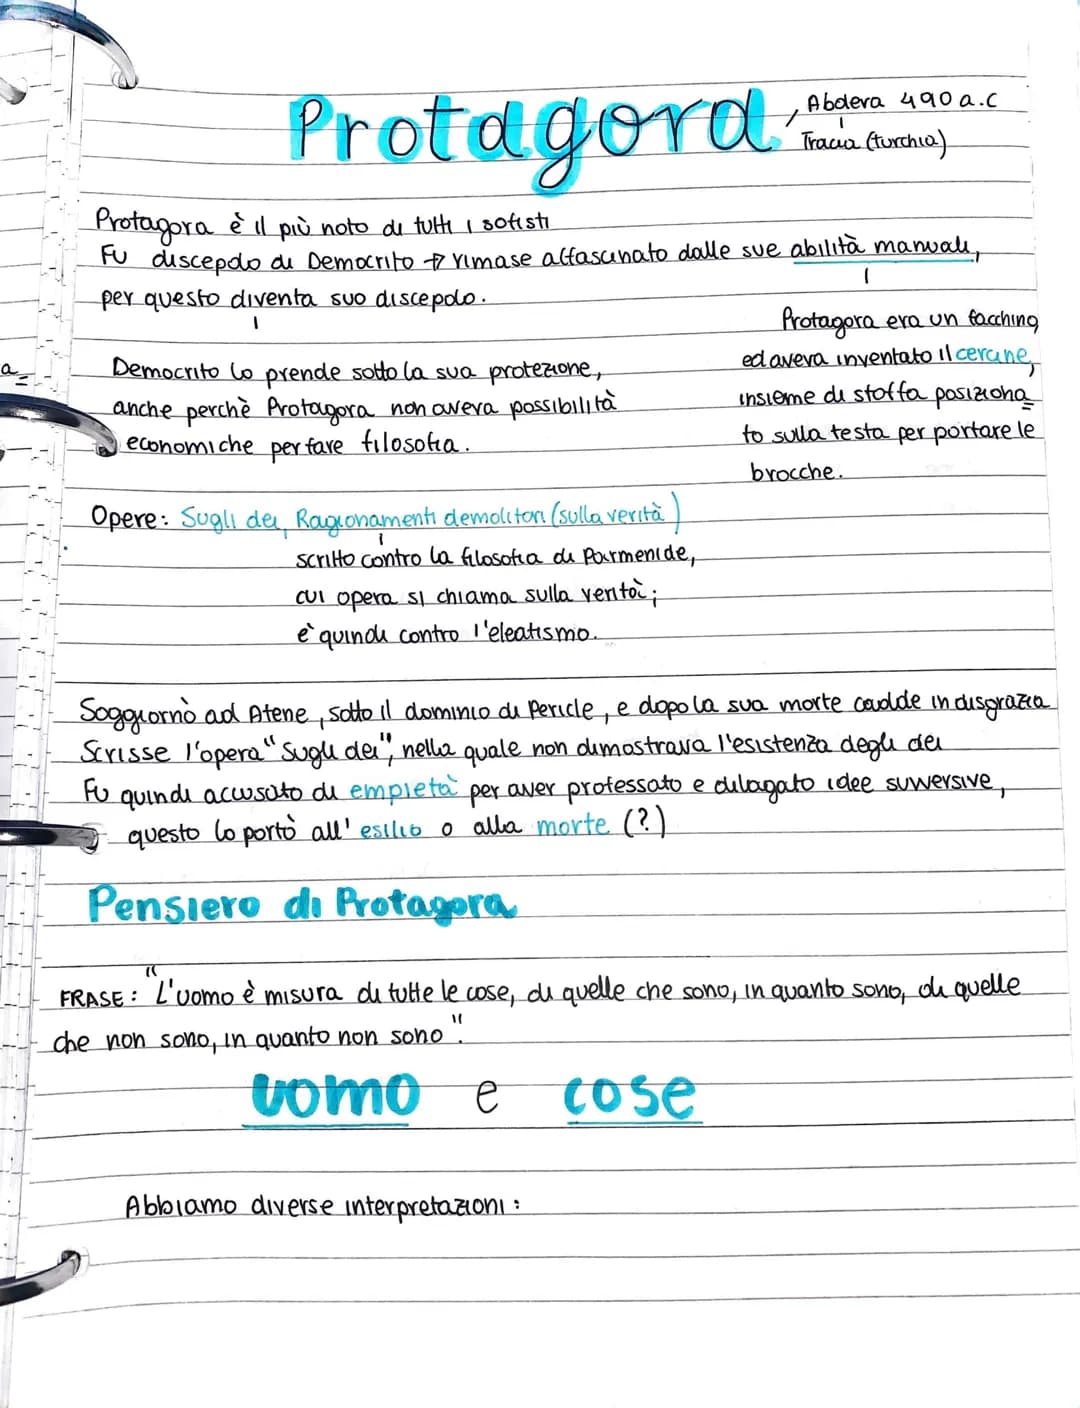 Protagora, Abdera 490 a.c
Tracia (turchia)
Protagora è il più noto di tutti i sofisti
Fu discepolo di Democrito → rimase affascinato dalle sue abilità manuali,
per questo diventa suo discepolo.
Protagora era un facchino
ed aveva inventato il cercine,
insieme di stoffa posiziona
to sulla testa per portare le
brocche.
Democrito lo prende sotto la sua protezione,
anche perchè Protagora non aveva possibilità
economiche per fare filosofia.
a
Opere: Sugli dei, Ragionamenti demolitori (sulla verità)
scritto contro la filosofia di Parmenide,
cui opera si chiama sulla verità;
è quindi contro l'eleatismo.
Soggiornò ad Atene, sotto il dominio di Pericle, e dopo la sua morte cadde in disgrazia
Scrisse l'opera "Sugli dei", nella quale non dimostrava l'esistenza degli dei
Fu quindi accusato di empietà per aver professato e dilagato idee suvversive,
questo lo portò all'esilio o alla morte (?)
Pensiero di Protagora
FRASE: "L'uomo è misura di tutte le cose, di quelle che sono, in quanto sono, di quelle
che non sono, in quanto non sono".
uomo e cose
Abbiamo diverse interpretazioni: